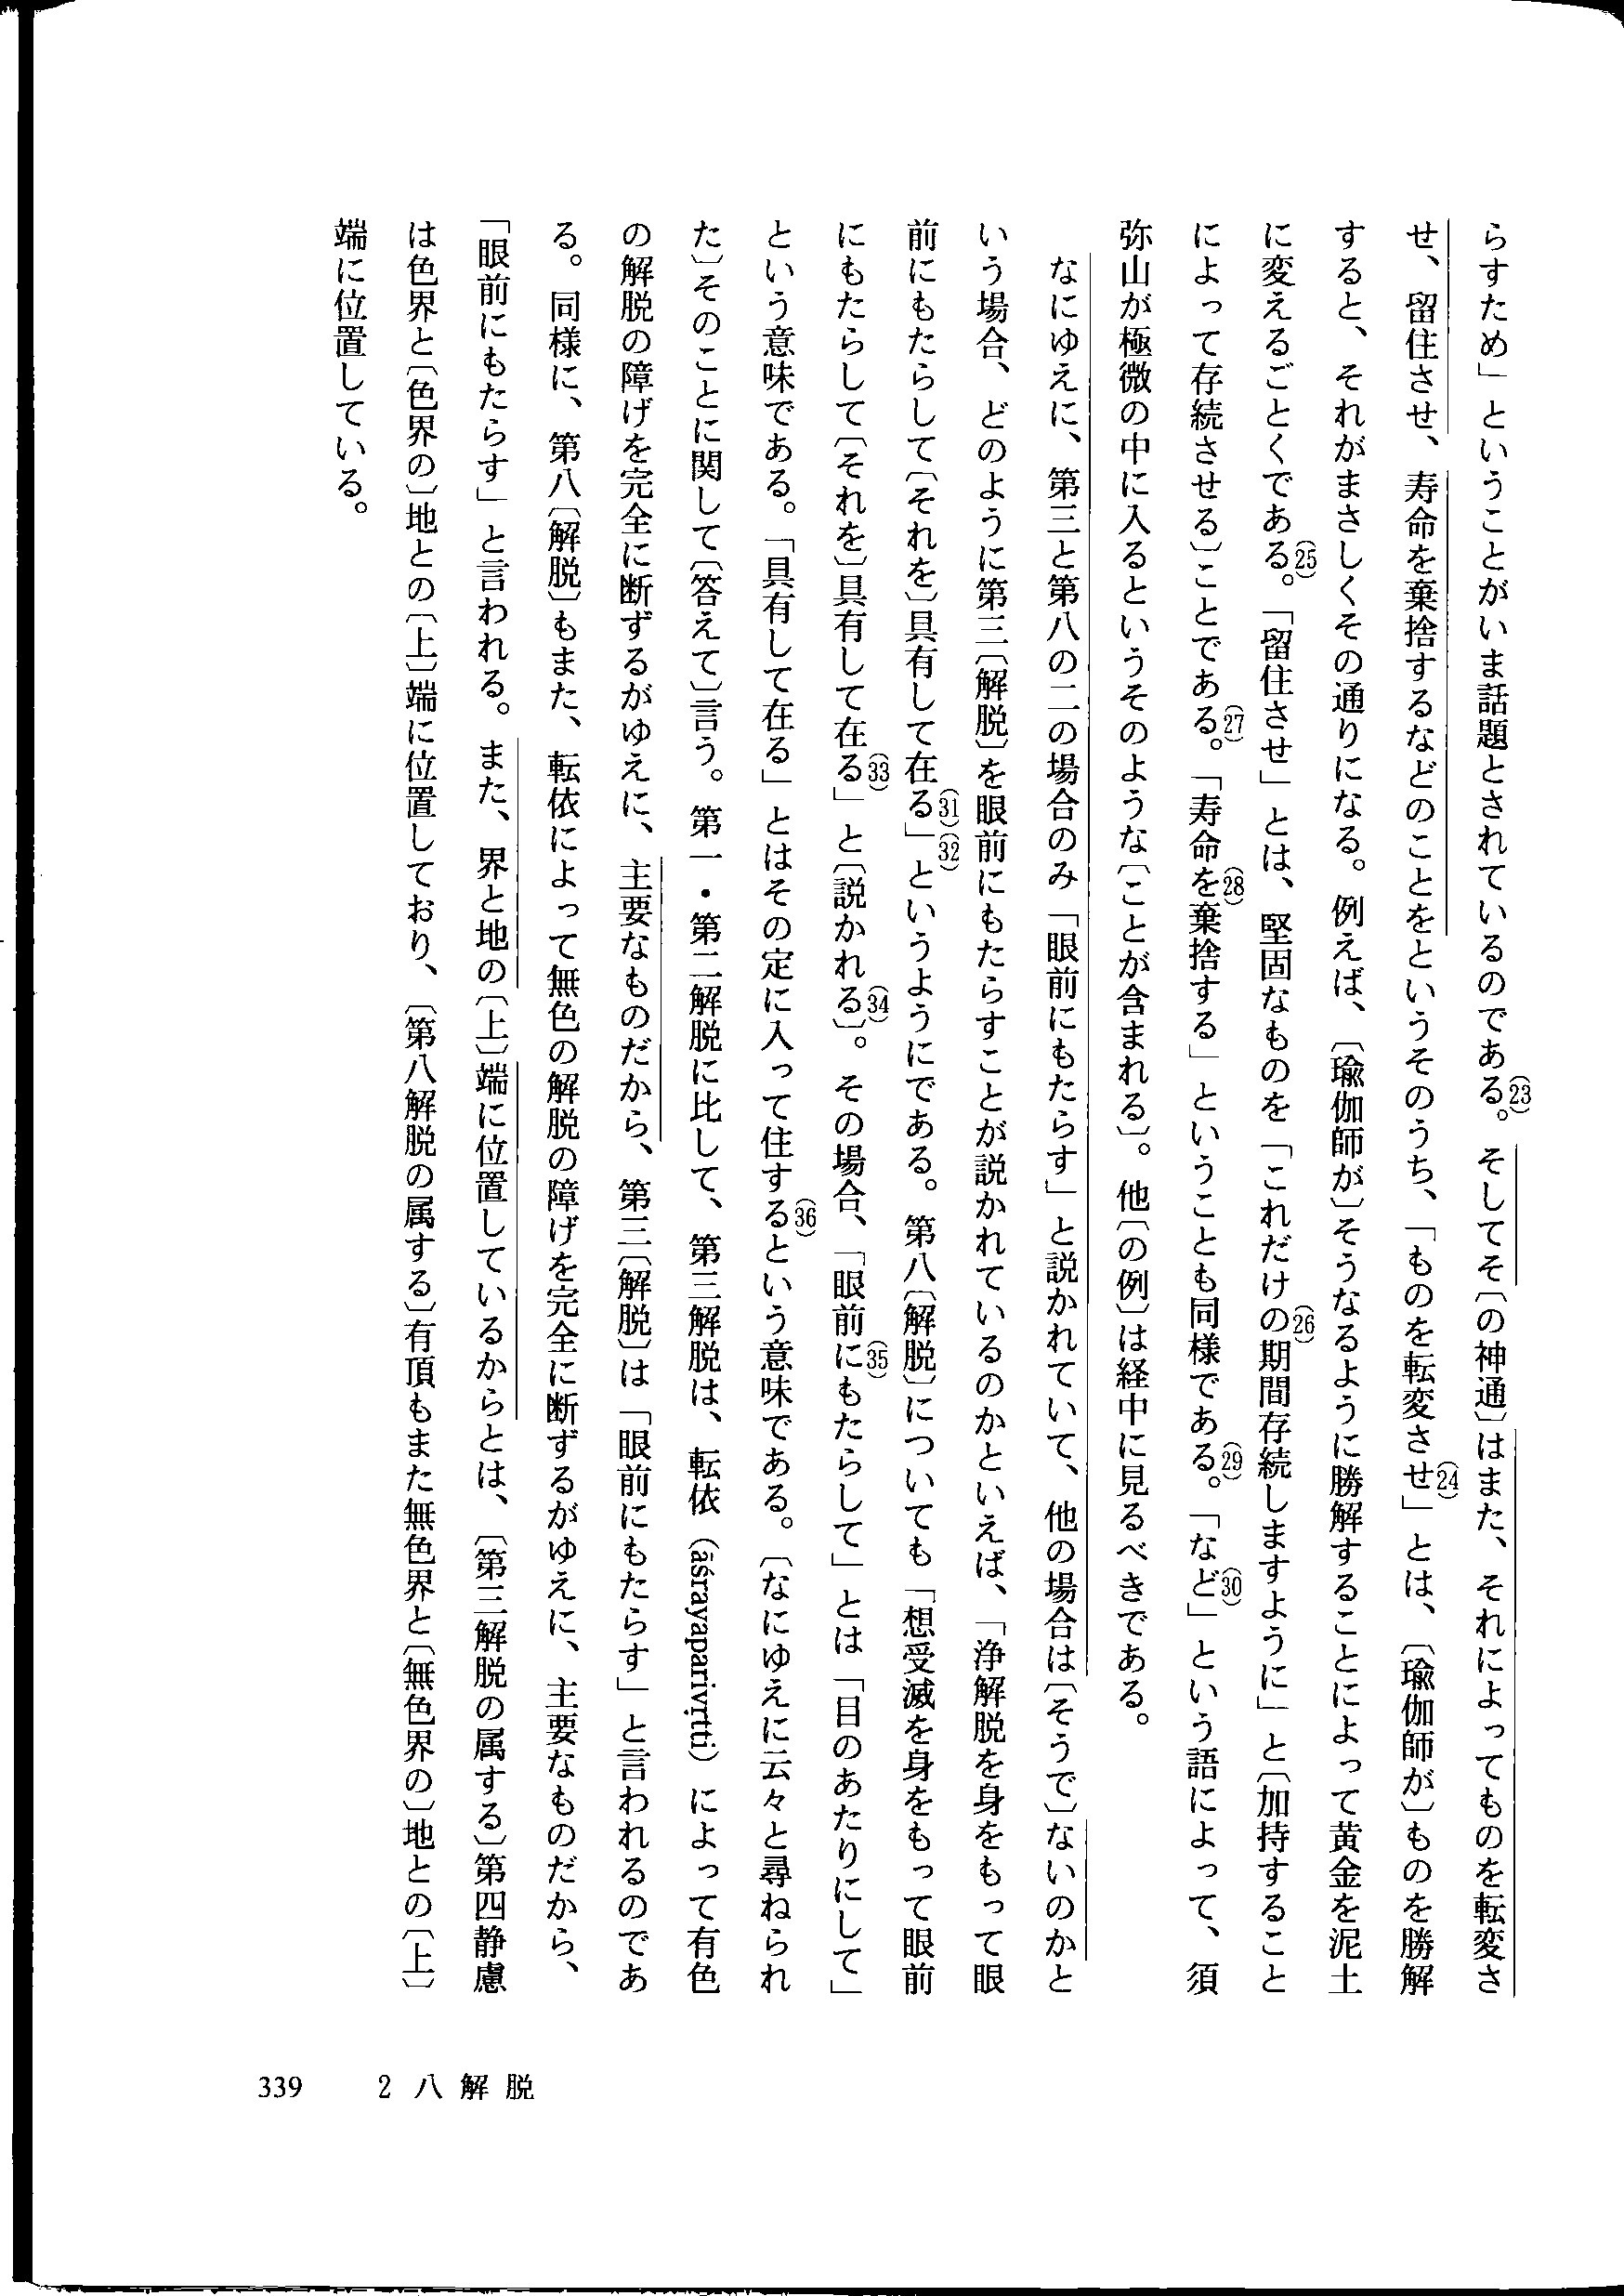 らすため」ということがいま話題とされているのである。(23)そしてそ〔の神通〕はまた、それによってものを転変さ
せ、留住させ、寿命を棄捨するなどのことをというそのうち、「ものを転変させ(24)」とは、〔瑜伽師が〕ものを勝解
すると、それがまさしくその通りになる。例えば、〔瑜伽師が〕そうなるように勝解することによって黄金を泥土
に変えるごとくである。(25)「留住させ」とは、堅固なものを「これだけの(26)期間存続しますように」と〔加持すること
によって存続させる〕ことである。(27)「寿命を(28)棄捨する」ということも同様である。(29)「など(30)」という語によって、須
弥山が極微の中に入るというそのような〔ことが含まれる〕。他〔の例〕は経中に見るべきである。
なにゆえに、第三と第八の二の場合のみ「眼前にもたらす」と説かれていて、他の場合は〔そうで〕ないのかと
いう場合、どのように第三〔解脱〕を眼前にもたらすことが説かれているのかといえば、「浄解脱を身をもって眼
前にもたらして〔それを〕具有して在る(31)」(32)というようにである。第八〔解脱〕についても「想受滅を身をもって眼前
にもたらして〔それを〕具有して在る(33)」と〔説かれる(34)〕。その場合、「眼前に(35)もたらして」とは「目のあたりにして」
という意味である。「具有して在る」とはその定に入って住する(36)という意味である。〔なにゆえに云々と尋ねられ
た〕そのことに関して〔答えて〕言う。第一・第二解脱に比して、第三解脱は、転依（āśrayaparivṛtti）によって有色
の解脱の障げを完全に断ずるがゆえに、主要なものだから、第三〔解脱〕は「眼前にもたらす」と言われるのであ
る。同様に、第八〔解脱〕もまた、転依によって無色の解脱の障げを完全に断ずるがゆえに、主要なものだから、
「眼前にもたらす」と言われる。また、界と地の〔上〕端に位置しているからとは、〔第三解脱の属する〕第四静慮
は色界と〔色界の〕地との〔上〕端に位置しており、〔第八解脱の属する〕有頂もまた無色界と〔無色界の〕地との〔上〕
端に位置している。
339 2 八解脱